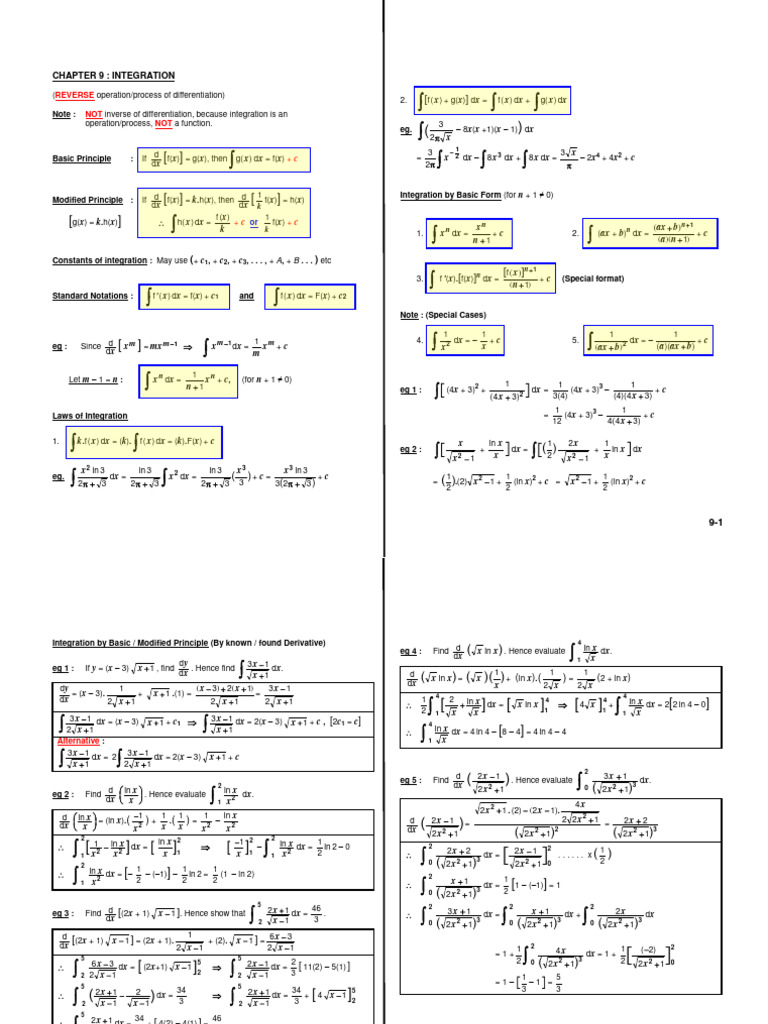 CHAPTER 9 : INTEGRATION
(REVERSE operation/process of differentiation)
Note : NOT inverse of differentiation, because integration is an
operation/process, NOT a function.
Basic Principle : If d/dx [f(x)] = g(x), then ∫ g(x) dx = f(x) + c
Modified Principle : If d/dx [f(x)] = k.h(x), then d/dx [1/k f(x)] = h(x)
[g(x) = k.h(x)] ∴ ∫ h(x) dx = f(x)/k + c or 1/k f(x) + c
Constants of integration : May use (+ c1, + c2, + c3, . . . , + A, + B . . . ) etc
Standard Notations : ∫ f '(x) dx = f(x) + c1 and ∫ f(x) dx = F(x) + c2
eg : Since d/dx [x^m] = mx^(m−1) ⇒ ∫ x^(m−1) dx = 1/m x^m + c
Let m − 1 = n : ∫ x^n dx = 1/(n + 1) x^n + c, (for n + 1 ≠ 0)
Laws of Integration
1. ∫ k.f(x) dx = (k). ∫ f(x) dx = (k).F(x) + c
eg. ∫ x^2 ln 3/(2π + √3) dx = ln 3/(2π + √3) ∫ x^2 dx = ln 3/(2π + √3) (x^3/3) + c = x^3 ln 3/(3(2π + √3)) + c
2. ∫ [f(x) + g(x)] dx = ∫ f(x) dx + ∫ g(x) dx
eg. ∫ (3/(2π√x) − 8x(x + 1)(x − 1)) dx
= 3/(2π) ∫ x^(−1/2) dx − ∫ 8x^3 dx + ∫ 8x dx = 3√x/π − 2x^4 + 4x^2 + c
Integration by Basic Form (for n + 1 ≠ 0)
1. ∫ x^n dx = x^n/(n + 1) + c 2. ∫ (ax + b)^n dx = (ax + b)^(n+1)/((a)(n + 1)) + c
3. ∫ f '(x).[f(x)]^n dx = [f(x)]^(n+1)/(n + 1) + c (Special format)
Note : (Special Cases)
4. ∫ 1/x^2 dx = − 1/x + c 5. ∫ 1/(ax + b)^2 dx = − 1/((a)(ax + b)) + c
eg 1 : ∫ [(4x + 3)^2 + 1/(4x + 3)^2] dx = 1/(3(4)) (4x + 3)^3 − 1/((4)(4x + 3)) + c
= 1/12 (4x + 3)^3 − 1/(4(4x + 3)) + c
eg 2 : ∫ [x/√(x^2 − 1) + ln x/x] dx = ∫ [(1/2) 2x/√(x^2 − 1) + 1/x ln x] dx
= (1/2).(2)√(x^2 − 1) + 1/2 (ln x)^2 + c = √(x^2 − 1) + 1/2 (ln x)^2 + c
9-1
Integration by Basic / Modified Principle (By known / found Derivative)
eg 1 : If y = (x − 3) √(x + 1) , find dy/dx . Hence find ∫ (3x − 1)/√(x + 1) dx.
dy/dx = (x − 3). 1/(2√(x + 1)) + √(x + 1) .(1) = ((x − 3) + 2(x + 1))/(2√(x + 1)) = (3x − 1)/(2√(x + 1))
∫ (3x − 1)/(2√(x + 1)) dx = (x − 3) √(x + 1) + c1 ⇒ ∫ (3x − 1)/√(x + 1) dx = 2(x − 3) √(x + 1) + c , [2c1 = c]
Alternative :
∫ (3x − 1)/√(x + 1) dx = 2 ∫ (3x − 1)/(2√(x + 1)) dx = 2(x − 3) √(x + 1) + c
eg 2 : Find d/dx (ln x/x) . Hence evaluate ∫_1^2 ln x/x^2 dx.
d/dx (ln x/x) = (ln x).(−1/x^2) + 1/x .(1/x) = 1/x^2 − ln x/x^2
∴ ∫_1^2 [1/x^2 − ln x/x^2] dx = [ln x/x]_1^2 ⇒ [−1/x]_1^2 − ∫_1^2 ln x/x^2 dx = 1/2 ln 2 − 0
∴ ∫_1^2 ln x/x^2 dx = [− 1/2 − (−1)] − 1/2 ln 2 = 1/2 (1 − ln 2)
eg 3 : Find d/dx [(2x + 1) √(x − 1)]. Hence show that ∫_2^5 (2x + 1)/√(x − 1) dx = 46/3 .
d/dx [(2x + 1) √(x − 1)] = (2x + 1). 1/(2√(x − 1)) + (2). √(x − 1) = (6x − 3)/(2√(x − 1))
∴ ∫_2^5 (6x − 3)/(2√(x − 1)) dx = [(2x+1) √(x − 1)]_2^5 ⇒ ∫_2^5 (2x − 1)/√(x − 1) dx = 2/3 [11(2) − 5(1)]
∴ ∫_2^5 ((2x + 1)/√(x − 1) − 2/√(x − 1)) dx = 34/3 ⇒ ∫_2^5 (2x + 1)/√(x − 1) dx = 34/3 + [4 √(x − 1)]_2^5
∴ ∫^5 2x + 1 dx = 34 + [4(2) − 4(1)] = 46
eg 4 : Find d/dx (√x ln x). Hence evaluate ∫_1^4 ln x/√x dx.
d/dx (√x ln x) = (√x)(1/x) + (ln x).(1/(2√x)) = 1/(2√x) (2 + ln x)
∴ 1/2 ∫_1^4 [2/√x + ln x/√x] dx = [√x ln x]_1^4 ⇒ [4√x]_1^4 + ∫_1^4 ln x/√x dx = 2[2 ln 4 − 0]
∴ ∫_1^4 ln x/√x dx = 4 ln 4 − [8 − 4] = 4 ln 4 − 4
eg 5 : Find d/dx ((2x − 1)/√(2x^2 + 1)) . Hence evaluate ∫_0^2 (3x + 1)/(√(2x^2 + 1))^3 dx.
d/dx ((2x − 1)/√(2x^2 + 1)) = (√(2x^2 + 1) .(2) − (2x − 1). 4x/(2√(2x^2 + 1)))/(√(2x^2 + 1))^2 = (2x + 2)/(√(2x^2 + 1))^3
∴ ∫_0^2 (2x + 2)/(√(2x^2 + 1))^3 dx = [(2x − 1)/√(2x^2 + 1)]_0^2 . . . . . . x (1/2)
∴ ∫_0^2 (x + 1)/(√(2x^2 + 1))^3 dx = 1/2 [1 − (−1)] = 1
∴ ∫_0^2 (3x + 1)/(√(2x^2 + 1))^3 dx = ∫_0^2 (x + 1)/(√(2x^2 + 1))^3 dx + ∫_0^2 2x/(√(2x^2 + 1))^3 dx
= 1 + 1/2 ∫_0^2 4x/(√(2x^2 + 1))^3 dx = 1 + 1/2 [(−2)/√(2x^2 + 1)]_0^2
= 1 − [1/3 − 1] = 5/3